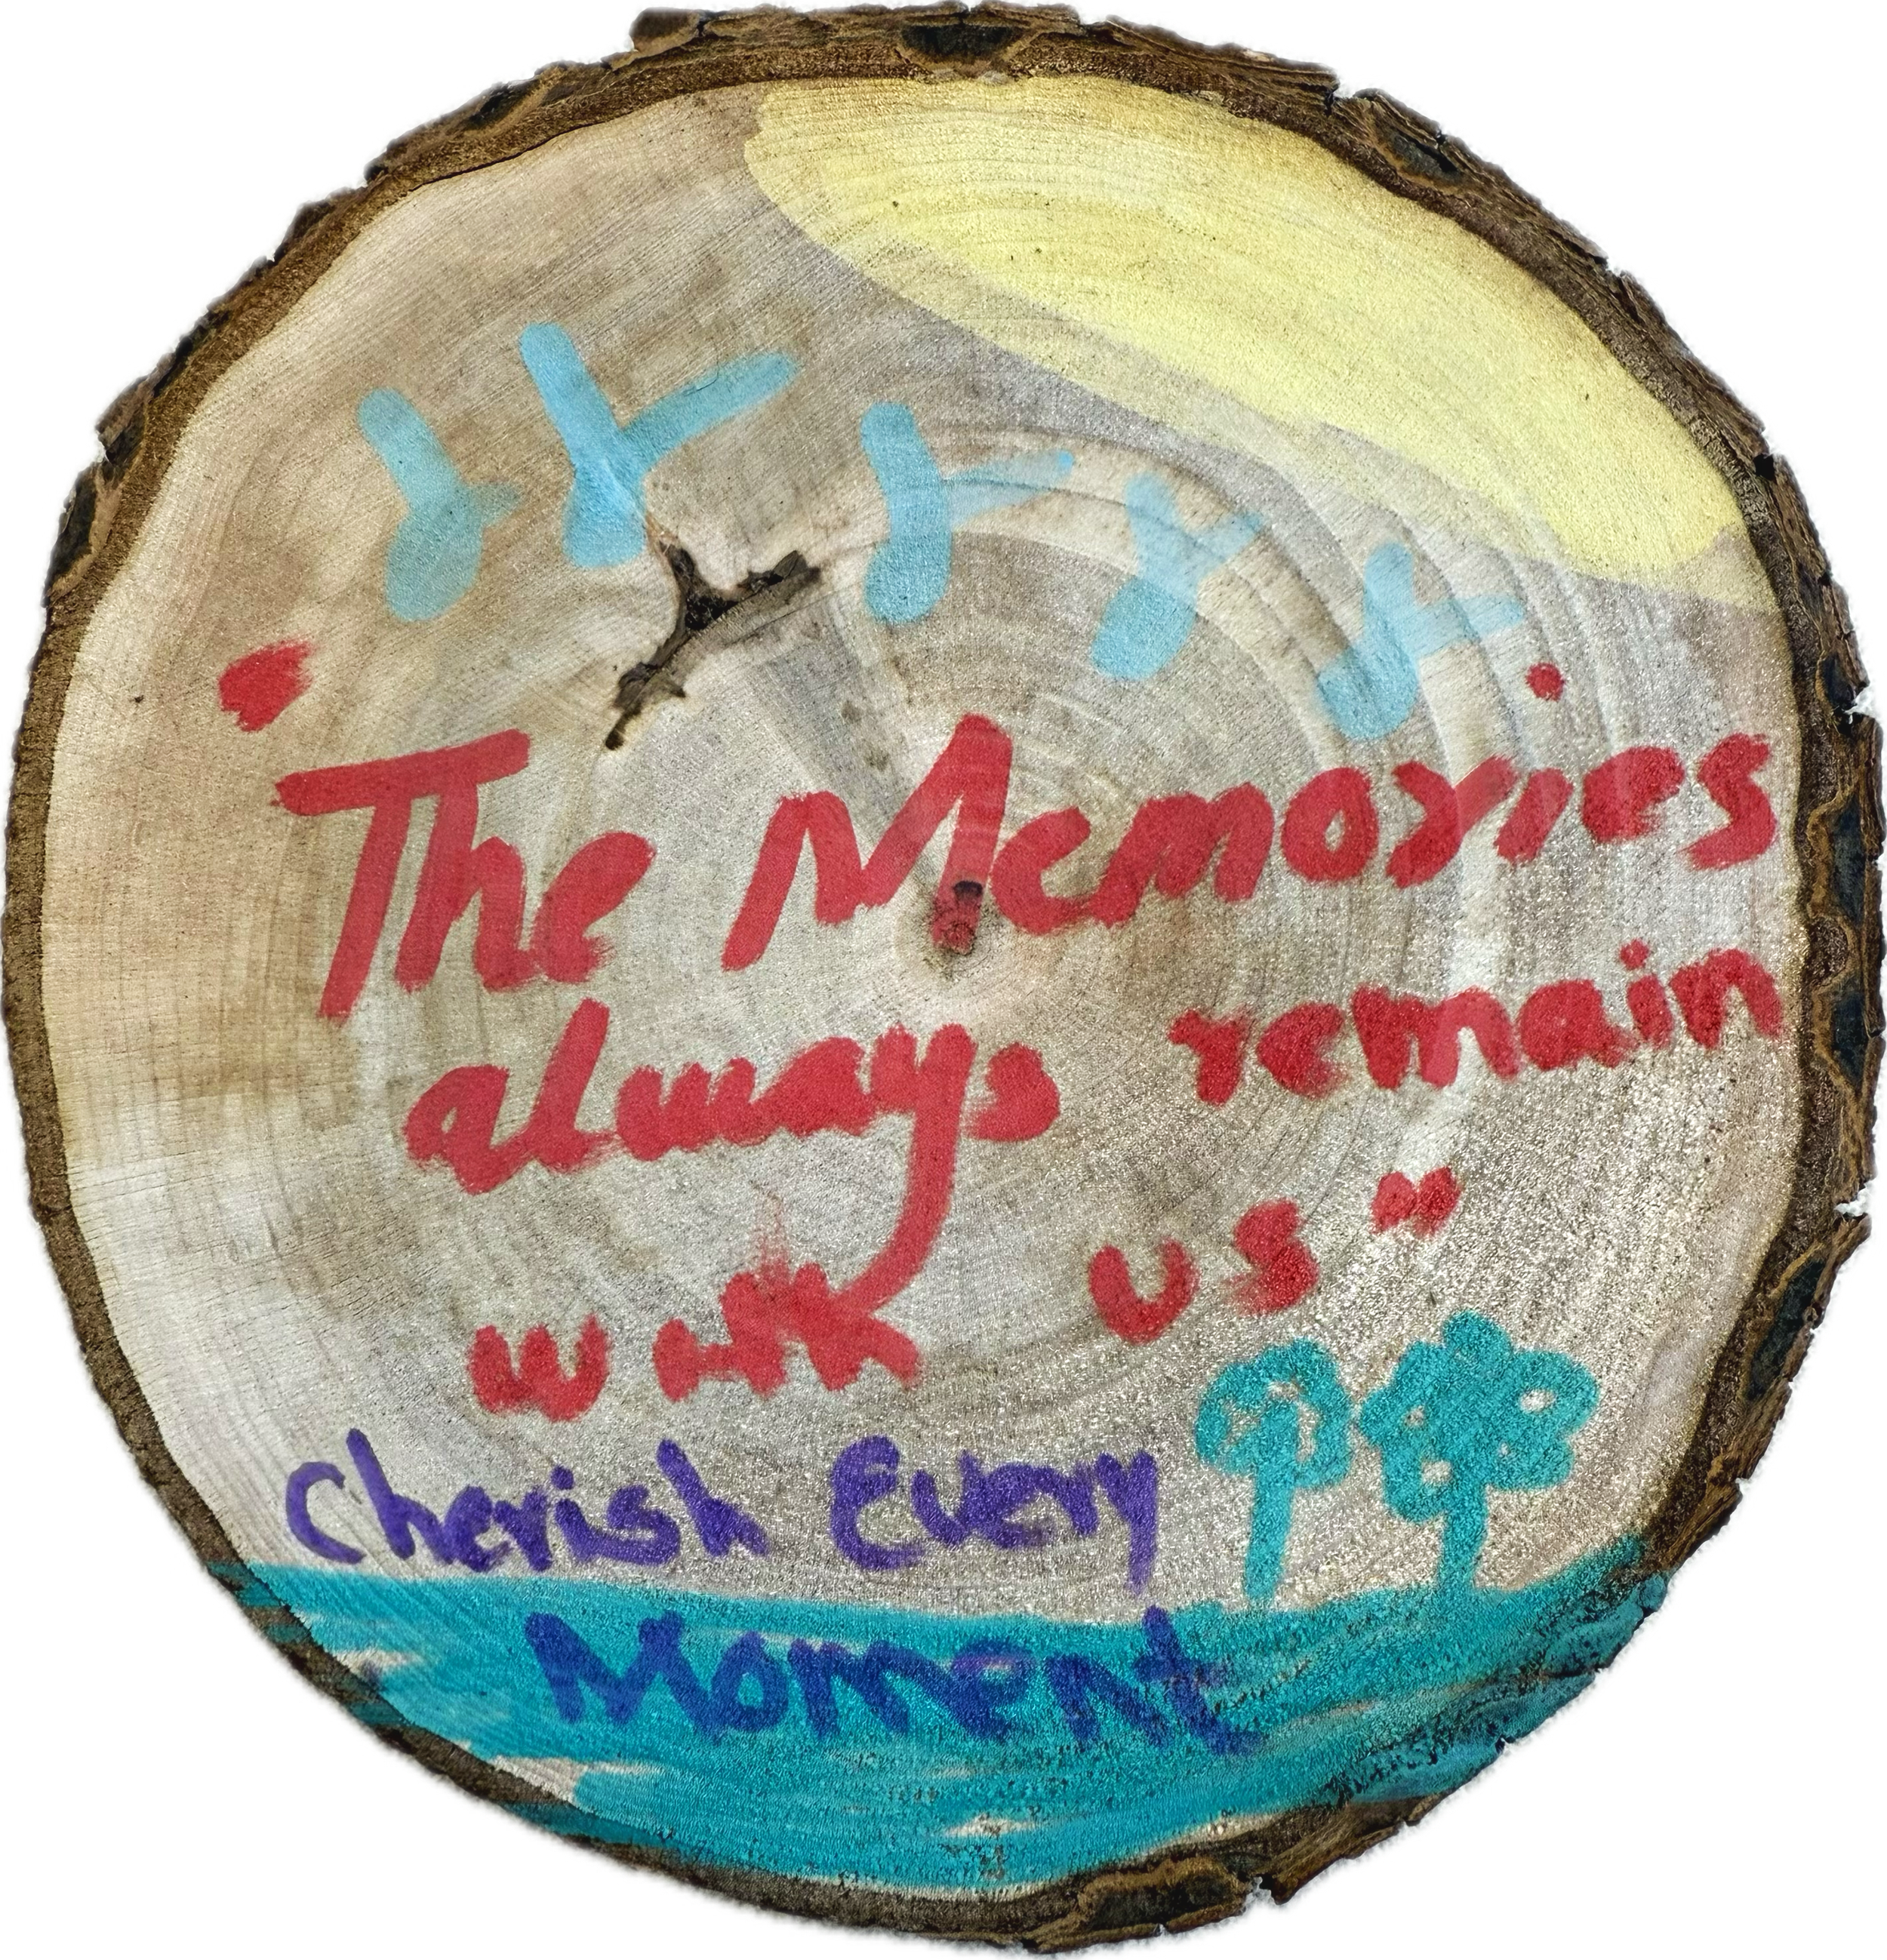 "The Memories
always remain
with us"
Cherish Every
Moment